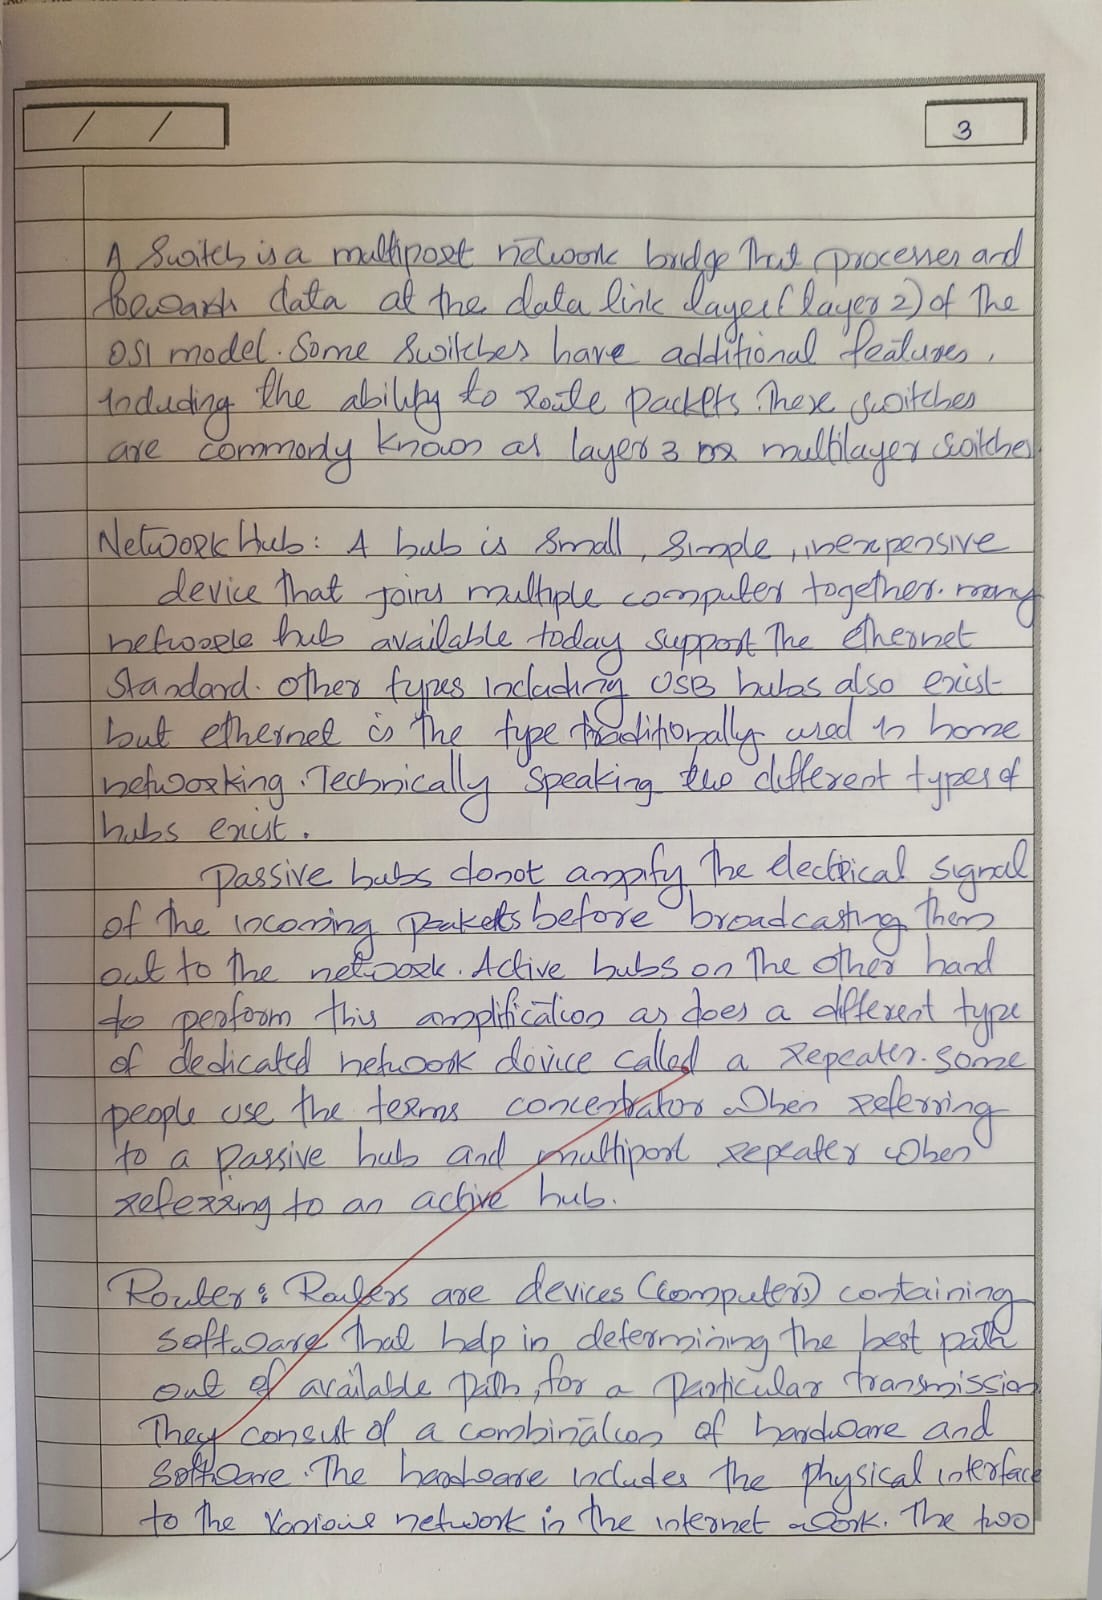 / /
3
A Switch is a multiport network bridge that processes and
forwards data at the data link layer (layer 2) of the
OSI model. Some switches have additional features,
Including the ability to route packets. These switches
are commonly known as layer 3 or multilayer switches
Network Hub: A hub is small, simple, inexpensive
device that joins multiple computer together. many
network hub available today support the ethernet
standard. other types including USB hubs also exist
but ethernet is the type traditionally used in home
networking. Technically speaking two different types of
hubs exist.
Passive hubs donot ampify the electrical signal
of the incoming packets before broadcasting them
out to the network. Active hubs on the other hand
do perform this amplification as does a different type
of dedicated network device called a repeater. some
people use the terms concentrator when referring
to a passive hub and multiport repeater when
referring to an active hub.
Router: Routers are devices (computers) containing
software that help in determining the best path
out of available path, for a particular transmission
They consist of a combination of hardware and
software. The hardware includes the physical interface
to the various network in the internet work. The two